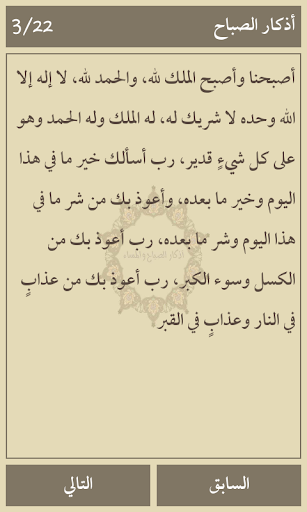 أذكار الصباح 3/22
أصبحنا وأصبح الملك لله، والحمد لله، لا إله إلا
الله وحده لا شريك له، له الملك وله الحمد وهو
على كل شيءٍ قدير، رب أسألك خير ما في هذا
اليوم وخير ما بعده، وأعوذ بك من شر ما في
هذا اليوم وشر ما بعده، رب أعوذ بك من
الكسل وسوء الكبر، رب أعوذ بك من عذابٍ
في النار وعذابٍ في القبر
أذكار الصباح والمساء
السابق
التالي